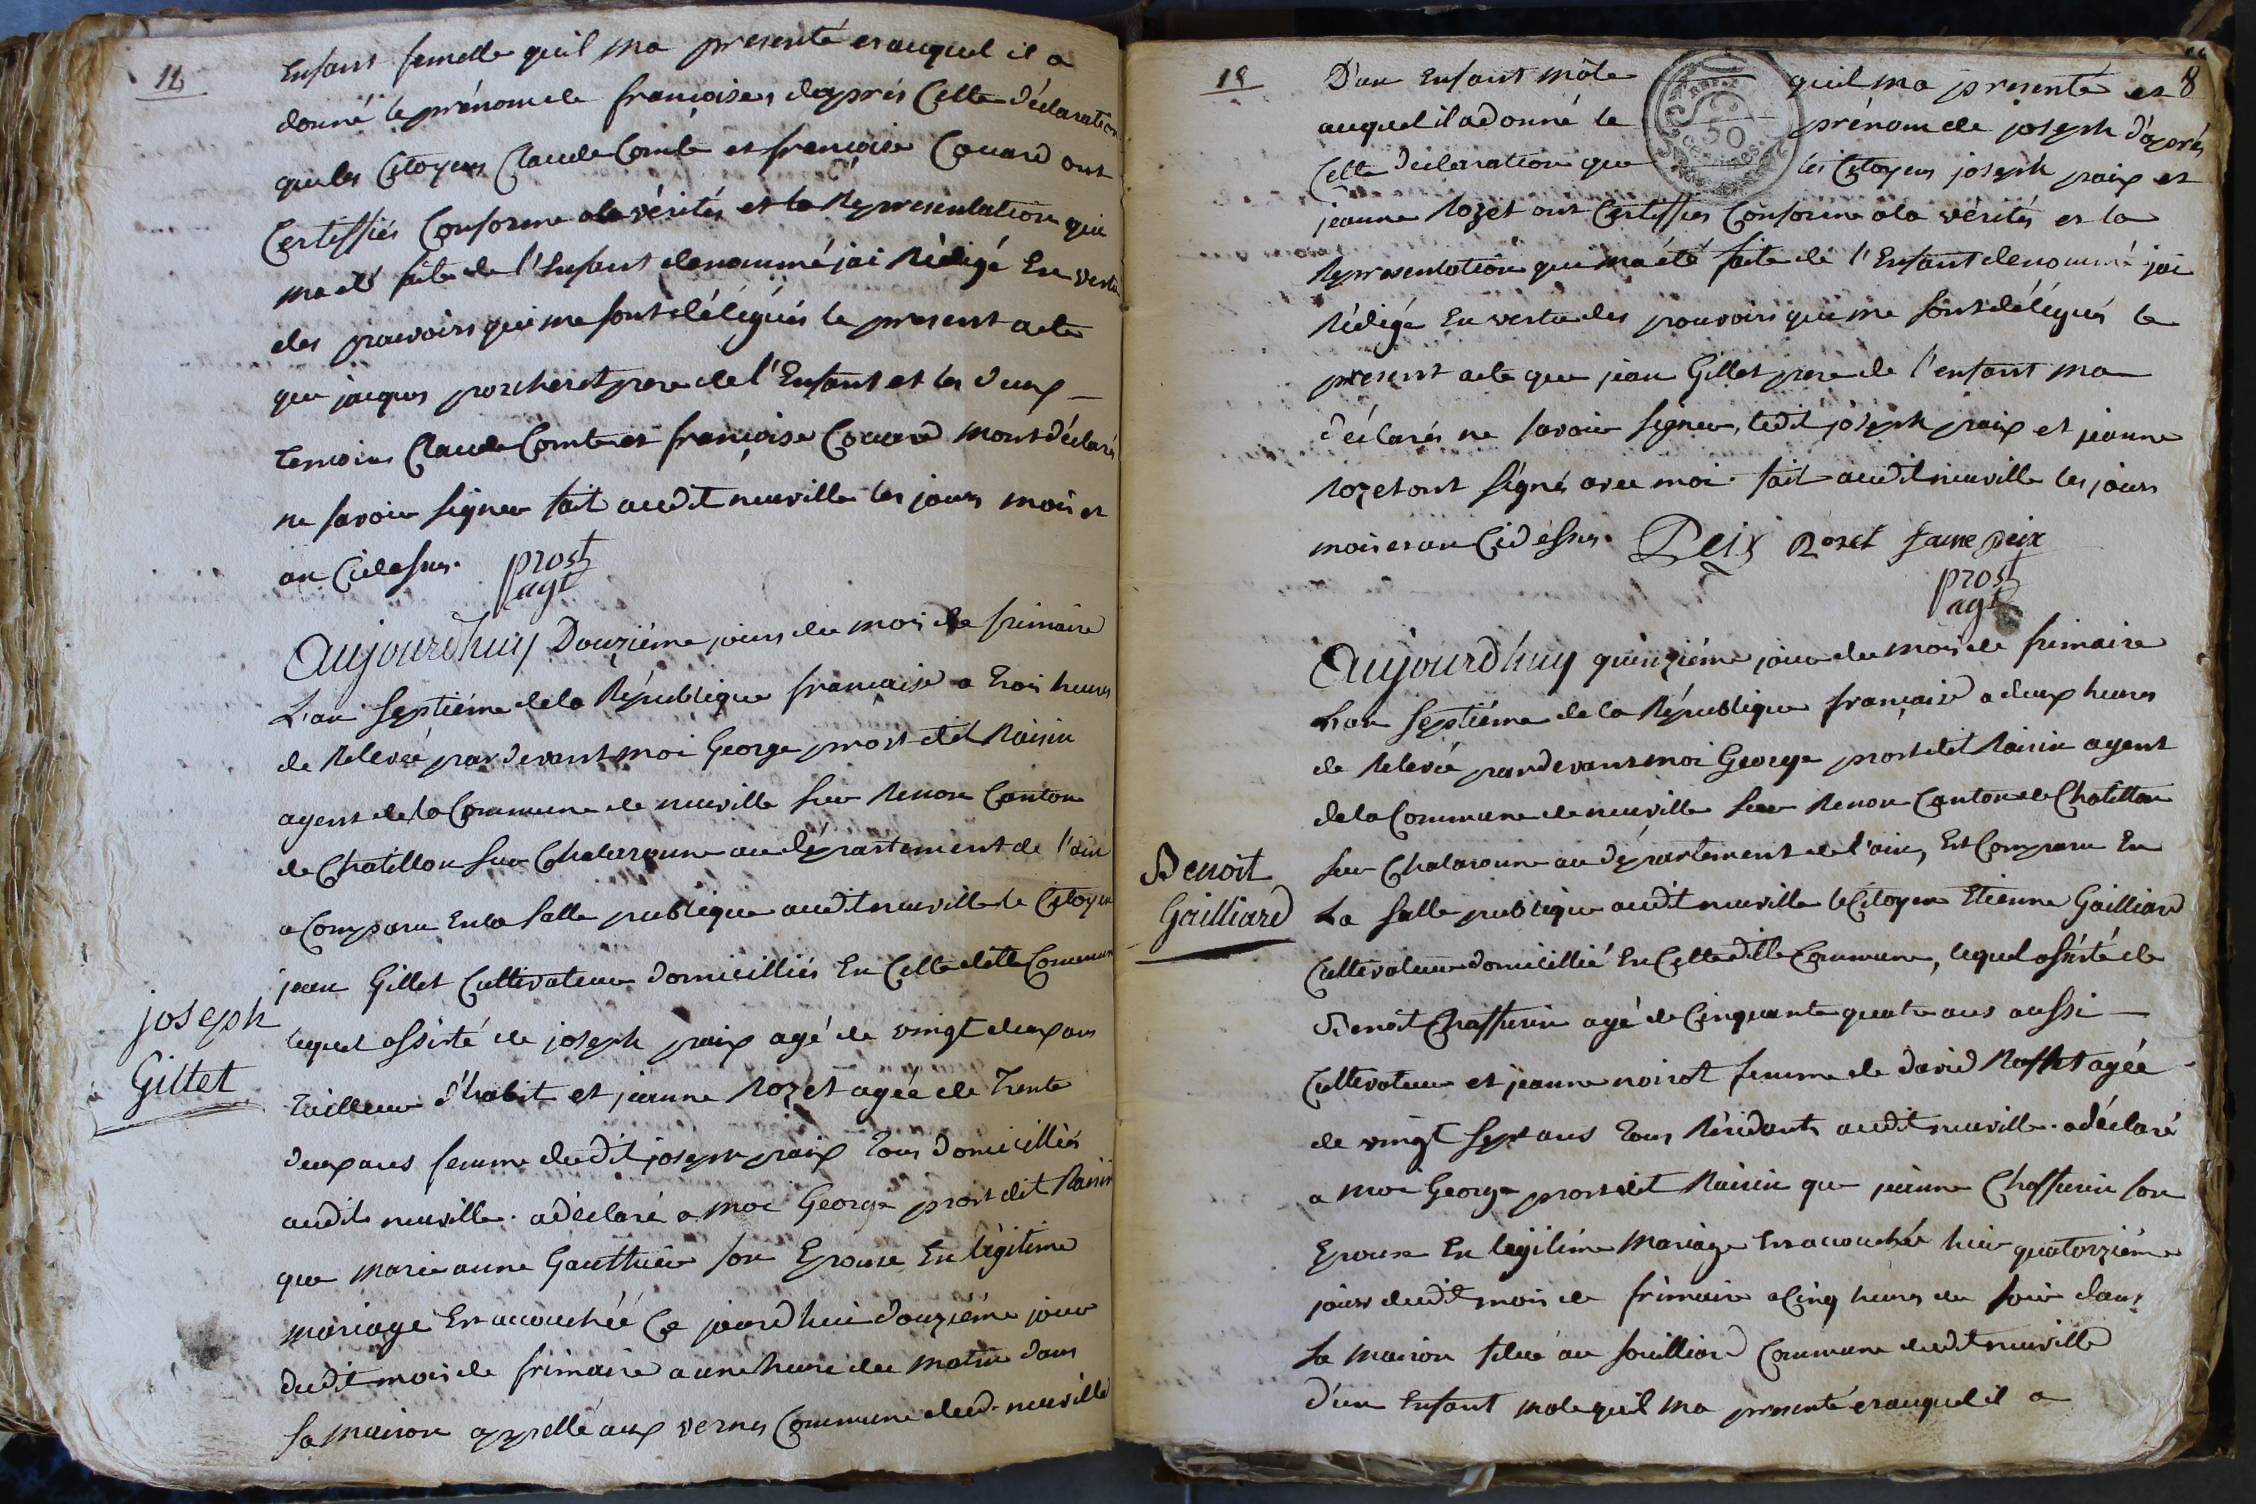 12
Enfant femelle quil ma presenté et auquel il a
donné le prénom de françoise, daprés Cette déclaration
que les Citoyens Claude Comte et françoise Couard ont
Certiffiés Conforme a la vérités et la Représentation qui
ma été faite de l'Enfant denommé jai Rédigé En vertu
des pouvoirs qui me sont délégués le present acte
que jacques porcheret pere de l'Enfant et les deux
temoins Claude Comte et françoise Couard mont déclarés
ne savoir signer fait audit neuville les jours mois et
an Cidessus.
prost
agt
Aujourdhuy Douziéme jours du mois de frimaire
L'an septiéme de la République francaise a trois heures
de Relevée pardevant moi George prost dit Raisin
agent de la Commune de neuville sur Renon Canton
de Chatillon sur Chalaronne au département de l'ain
a Comparu En la salle publique audit neuville le Citoyen
jean Gillet Cultivateur domicilliés En Cette ditte Commune
joseph
Gillet
lequel assisté de joseph paix agé de vingt deux ans
tailleur d'habit et jeanne Rozet agée de trente
deux ans femme dudit joseph paix tous domicilliés
audit neuville. a déclaré a moi George prost dit Raisin
que marie anne Gauthier son Epouse En légitime
mariage Est accouchéé Ce jourdhui douziéme jour
dudit mois de frimaire a une heure du matin dans
sa maison appellé aux vernes Commune dud. neuville
18
8
D'un Enfant mâle quil ma presenté et
auquel il a donné le prénom de joseph d'aprés
Cette déclaration que les Citoyens joseph paix et
50
centimes
jeanne Rozet ont Certiffiés Conforme a la vérités et la
Représentation qui ma été faite de l'Enfant denommé jai
Rédigé En vertu des pouvoirs qui me sont délégués le
present acte que jean Gillet pere de l'enfant ma
déclarés ne savoir signer, ledit joseph paix et jeanne
Rozet ont signés avec moi. fait audit neuville les jours
mois et an Cidessus. Peix Roset fame peix
prost
agt
Aujourdhuy quinziéme jour du mois de frimaire
L'an septiéme de la République francaise a deux heures
de Relevée pardevant moi George prost dit Raisin agent
de la Commune de neuville sur Renon Canton de Chatillon
sur Chalaronne au département de l'ain, Est Comparu En
Benoit
Gailliard
La salle publique audit neuville le Citoyen Etienne Gailliard
Cultivateur domicillié En Cette ditte Commune, lequel assisté de
Benoit Chaffurin agé de Cinquante quatre ans aussi
Cultivateur et jeanne noirot femme de david agée
de vingt sept ans tous Résidants audit neuville. a déclaré
a moi George prost dit Raisin que jeanne Chaffurin son
Epouse En legitime mariage Est accouchée hier quatorziéme
jour dudit mois de frimaire a Cinq heures du soir dans
sa maison situé au souilliard Commune dudit neuville
d'un Enfant male quil ma presenté et auquel il a